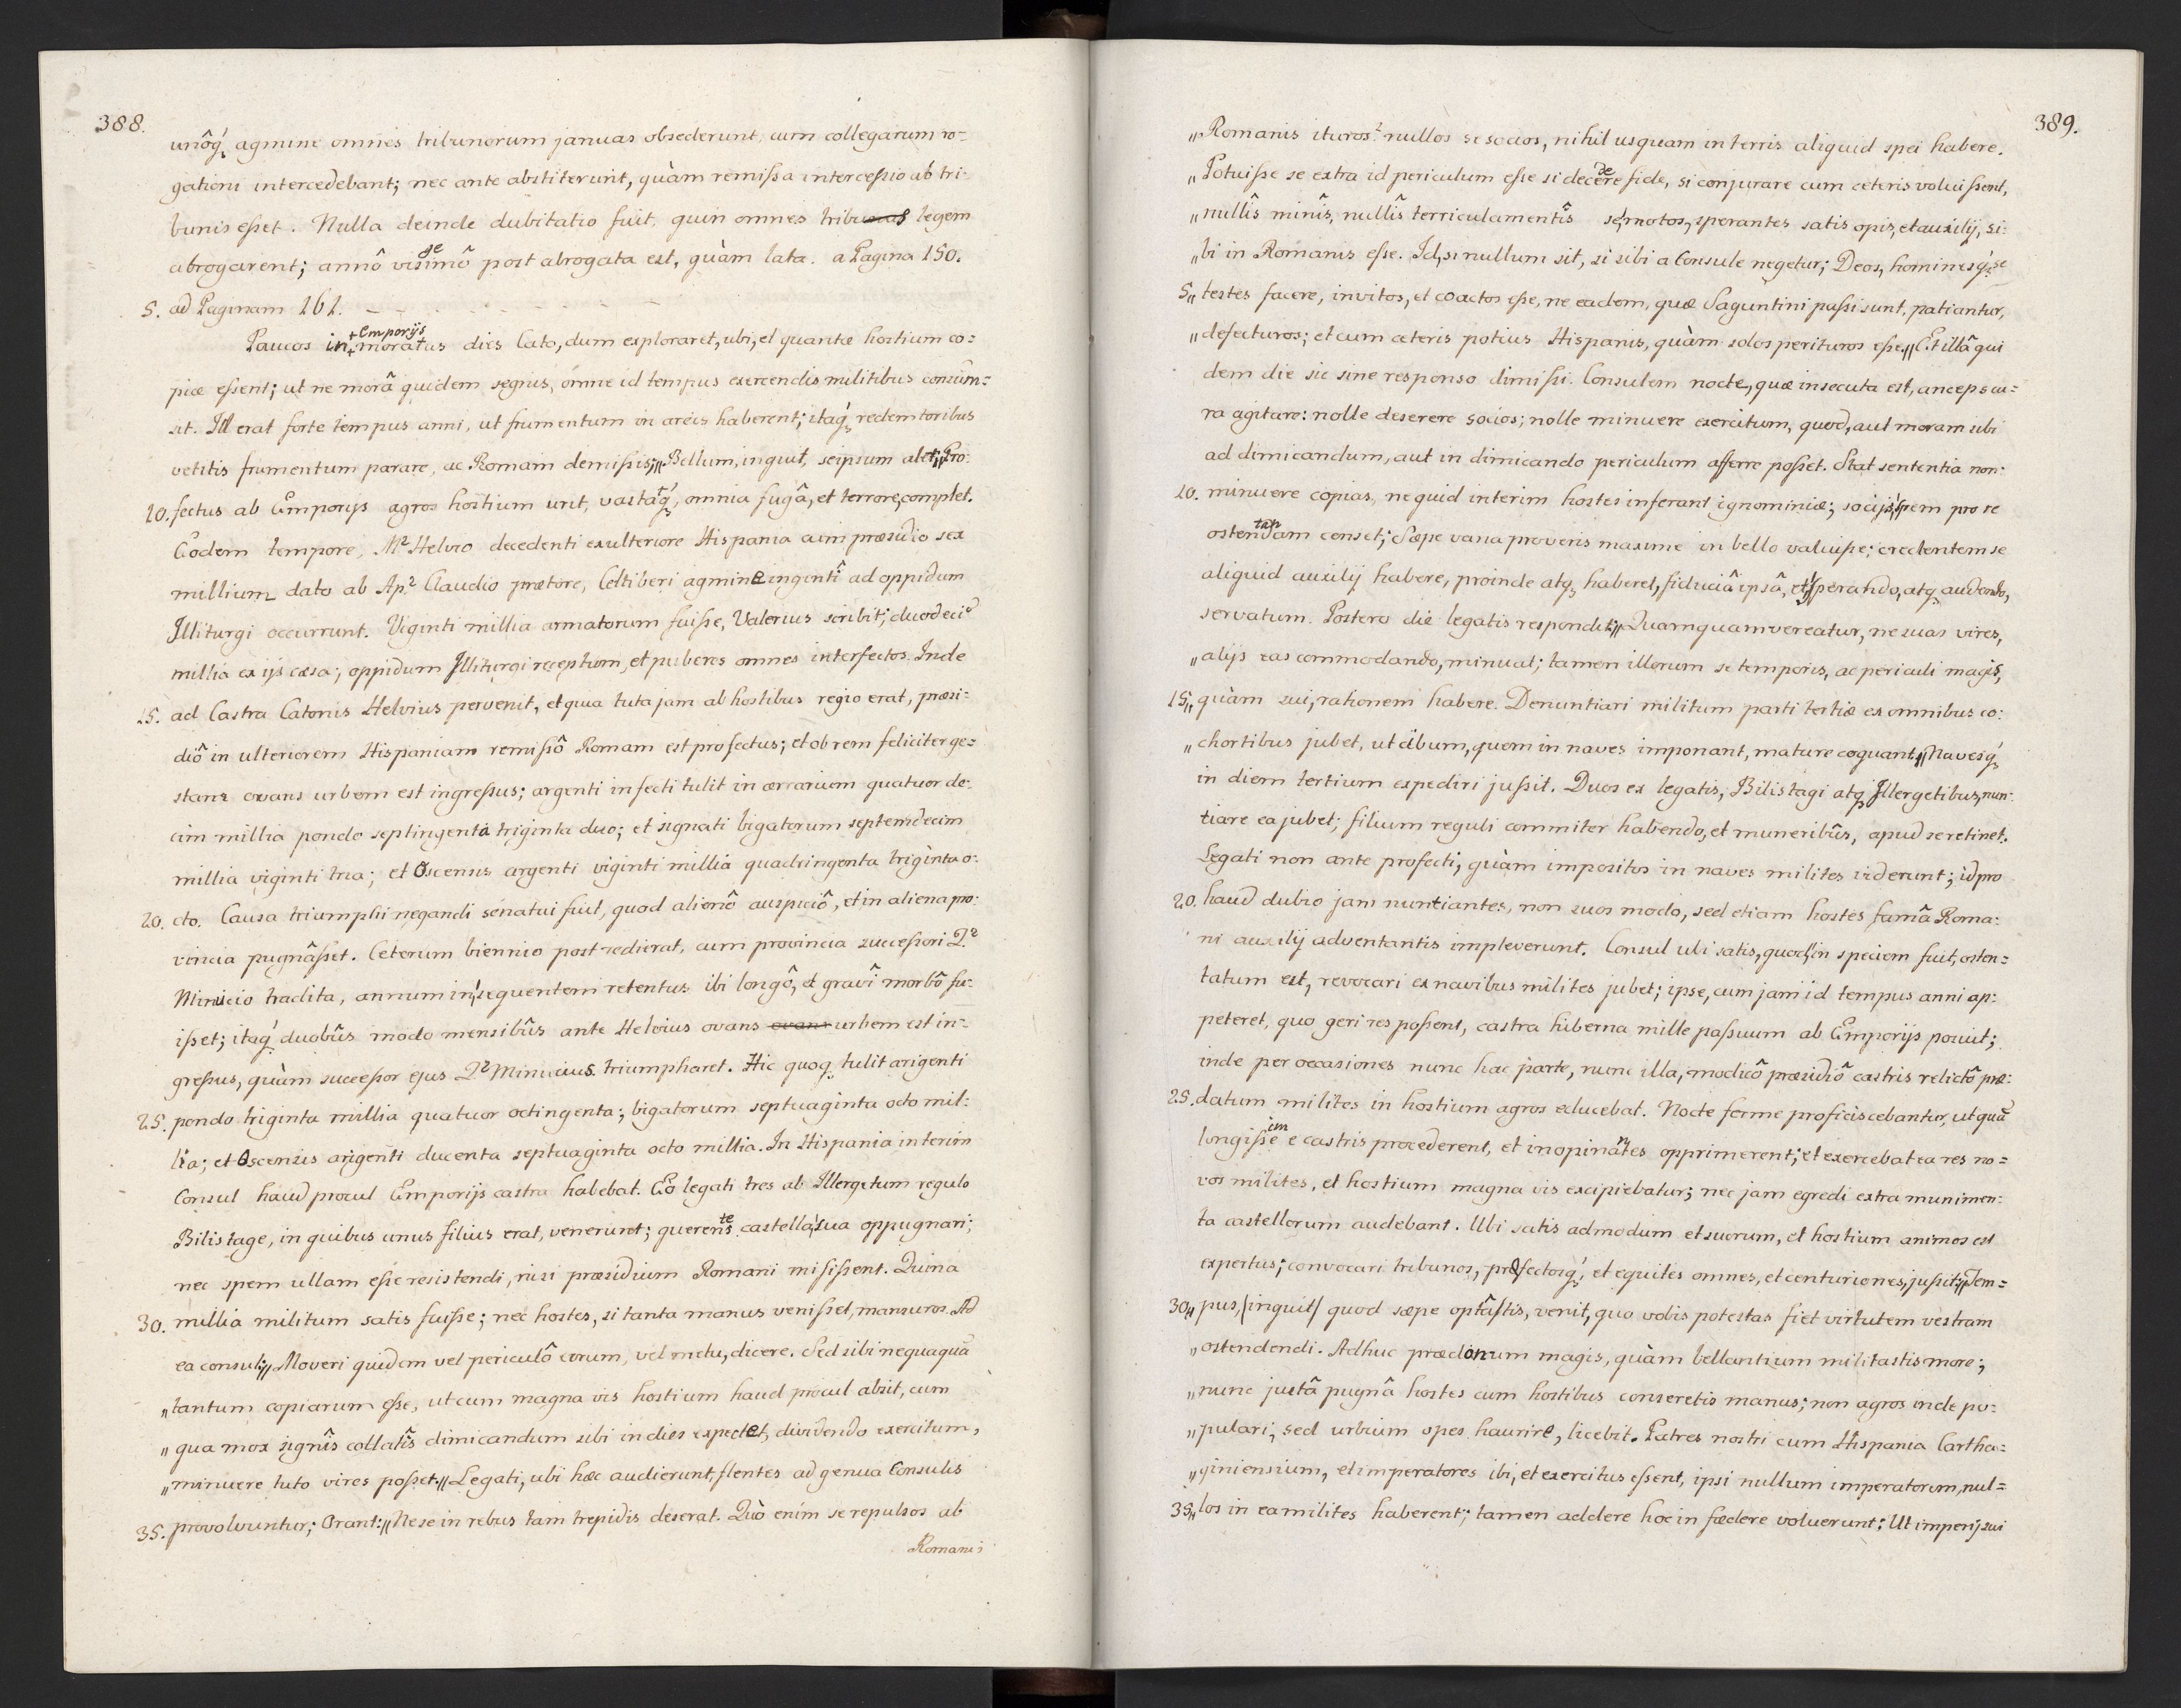 388.
unôq́ꝫ agmine omnes tribunorum januas obsederunt, cum collegarum ro-
gationi intercedebant; nec ante abstiterunt, quàm remissa intercessio ab tri-
bunis esset. Nulla deinde dubitatio fuit, quin omnes tribus legem
abrogarent; annô visesimô post abrogata est, quàm lata. a Pagina 150.
5. ad Paginam 161.
Paucos in Emporijs moratus dies Cato, dum exploraret, ubi, et quantæ hostium co=
piæ essent; ut ne morâ quidem segnis, omne id tempus exercendis militibus consum=
sit. Ill erat forte tempus anni, ut frumentum in areis haberent; itaq́ꝫ redemtoribus
vetitis frumentum parare, ac Romam demissis; „Bellum, inquit, seipsum alet;„ Pro-
10. fectus ab Emporijs agros hostium urit, vastatq́ꝫ, omnia fugâ, et terrore, complet.
Eodem tempore, M² Helvio decedenti ex ulteriore Hispania cum præsidio sex
millium dato ab Ap² Claudio prætore, Celtiberi agmine ingentî ad oppidum
Illiturgi occurrunt. Viginti millia armatorum fuisse, Valerius scribit; duodecī
millia ex ijs cæsa; oppidum Illiturgi receptum, et puberes omnes interfectos. Inde
15. ad Castra Catonis Helvius pervenit, et quia tuta jam ab hostibus regio erat, præsi-
diô in ulteriorem Hispaniam remissô Romam est profectus; et ob rem feliciter ge=
stam ovans urbem est ingressus; argenti infecti tulit in ærarium quatuor de-
cim millia pondo septingenta triginta duo; et signati bigatorum septemdecim
millia viginti tria; et Oscensis argenti viginti millia quadringenta triginta o-
20. cto. Causa triumphi negandi senatui fuit, quod alienô auspiciô, et in aliena pro-
vincia pugnâsset. Ceterum biennio post redierat, cum provincia successori Q²
Minucio tradita, annum insequentem retentus ibi longô, et gravî morbô fu-
isset; itaq́ duobûs modo mensibûs ante Helvius ovans ovans urbem est in-
gressus, quàm successor ejus Q² Minucius triumpharet. Hic quoqꝫ tulit argenti
25. pondo triginta millia quatuor octingenta; bigatorum septuaginta octo mil-
lia; et Oscensis argenti ducenta septuaginta octo millia. In Hispania interim
Consul haud procul Emporijs castra habebat. Eò legati tres ab Illergetum regulo
Bilistage, in quibus unus filius erat, venerunt; querentes castella sua oppugnari;
nec spem ullam esse resistendi, nisi præsidium Romani misissent. Quina
30. millia militum satis fuisse; nec hostes, si tanta manus venisset, mansuros. Ad
ea consul; „Moveri quidem vel periculô eorum, vel metu, dicere. Sed sibi nequaquā
„tantum copiarum esse, ut cum magna vis hostium haud procul absit, cum
„qua mox signîs collatîs dimicandum sibi in dies expectet, dividendo exercitum,
„minuere tuto vires posset.„ Legati, ubi hæc audierunt, flentes ad genua Consulis
35. provolvuntur; Orant: „Ne se in rebus tam trepidis deserat. Quò enim se repulsos ab
Romanis
389.
„Romanis ituros? nullos se socios, nihil usquam in terris aliquid spei habere.
„Potuisse se extra id periculum esse si decedere fide, si conjurare cum ceteris voluissent,
„nullîs minîs, nullîs terriculamentîs se motos, sperantes satis opis, et auxilij, si-
„bi in Romanis esse. Id, si nullum sit, si sibi a Consule negetur; Deos, hominesq́ꝫ se
5„ testes facere, invitos, et coactos esse, ne eadem, quæ Saguntini passi sunt, patiantur,
„defecturos; et cum ceteris potius Hispanis, quàm solos perituros esse.„ Et illâ qui
dem die sic sine responso dimissi. Consulem nocte, quæ insecuta est, anceps cu-
ra agitare: nolle deserere socios; nolle minuere exercitum, quod, aut moram sibi
ad dimicandum, aut in dimicando periculum afferre posset. Stat sententia non-
10. minuere copias, ne quid interim hostes inferant ignominiæ; socijs, spem pro re
ostentandam censet; Sæpe vana pro veris maxime in bello valuisse; credentem se
aliquid auxilij habere, proinde atqꝫ haberet, fiduciâ ipsâ, et sperando, atqꝫ audendo,
servatum. Postero die legatis respondit; „Quamquam vereatur, ne suas vires,
„alijs eas commodando, minuat; tamen illorum se temporis, ac periculi magis,
15„ quàm sui, rationem habere. Denuntiari militum parti tertiæ ex omnibus co-
„chortibus jubet, ut cibum, quem in naves imponant, mature coquant,„ Navesq́ꝫ
in diem tertium expediri jussit. Duos ex legatis, Bilistagi atqꝫ Illergetibus, nun-
tiare ea jubet; filium reguli commiter habendo, et muneribûs, apud se retinet.
Legati non ante profecti, quàm impositos in naves milites viderunt; id pro
20. haud dubio jam nuntiantes, non suos modo, sed etiam hostes famâ Roma-
ni auxilij adventantis impleverunt. Consul ubi satis, quod in speciem fuit, osten-
tatum est, revocari ex navibus milites jubet; ipse, cum jam id tempus anni ap-
peteret, quo geri res possent, castra hiberna mille passuum ab Emporijs posuit;
inde per occasiones nunc hac parte, nunc illa, modicô præsidiô castris relictô præ-
25. datum milites in hostium agros educebat. Nocte ferme proficiscebantur, ut quā
longissime e castris procederent, et inopinantes opprimerent; et exercebat ea res no=
vos milites, et hostium magna vis excipiebatur; nec jam egredi extra munimen-
ta castellorum audebant. Ubi satis admodum et suorum, et hostium animos est
expertus; convocari tribunos, præfectosq́ꝫ, et equites omnes, et centuriones, jussit; „Tem=
30„ pus, /inquit/ quod sæpe optâstis, venit, quo vobis potestas fiet virtutem vestram
„ostendendi. Adhuc prædonum magis, quàm bellantium militastis more;
„nunc justâ pugnâ hostes cum hostibus conseretis manus; non agros inde po-
„pulari, sed urbium opes haurire, licebit. Patres nostri cum Hispania Cartha=
„giniensium, et imperatores ibi, et exercitus essent, ipsi nullum imperatorem, nul=
35„ los in ea milites haberent; tamen addere hoc in fœdere voluerunt: Ut imperij sui